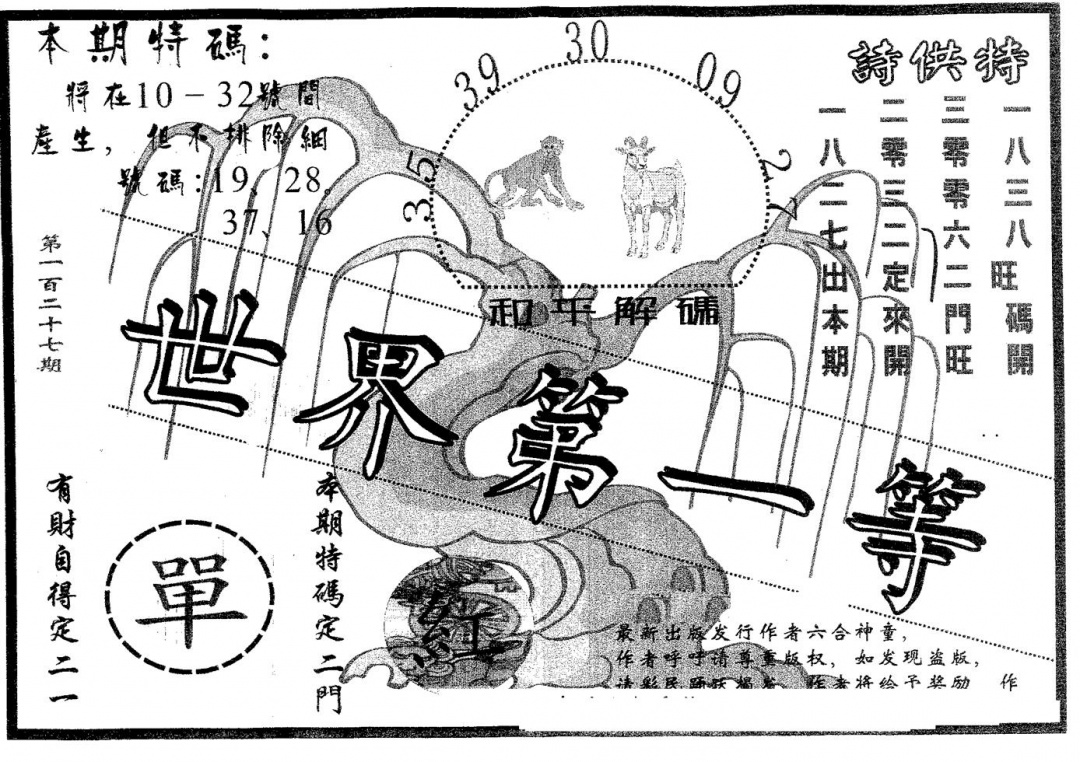 本期特碼:
將在10－32號間
產生，但不排除細
號碼:19、28。
37、16
39
30
09
35
27
和平解碼
詩供特
一八三八旺碼開
三零零六二門旺
二零三二定來開
一八二七出本期
第一百二十七期
世界第一等
有財自得定二一
單
本期特碼定二門
紅
最新出版发行作者六合神童，
作者呼吁请尊重版权，如发现盗版，
请彩民踊跃揭发，作者将给予奖励 作